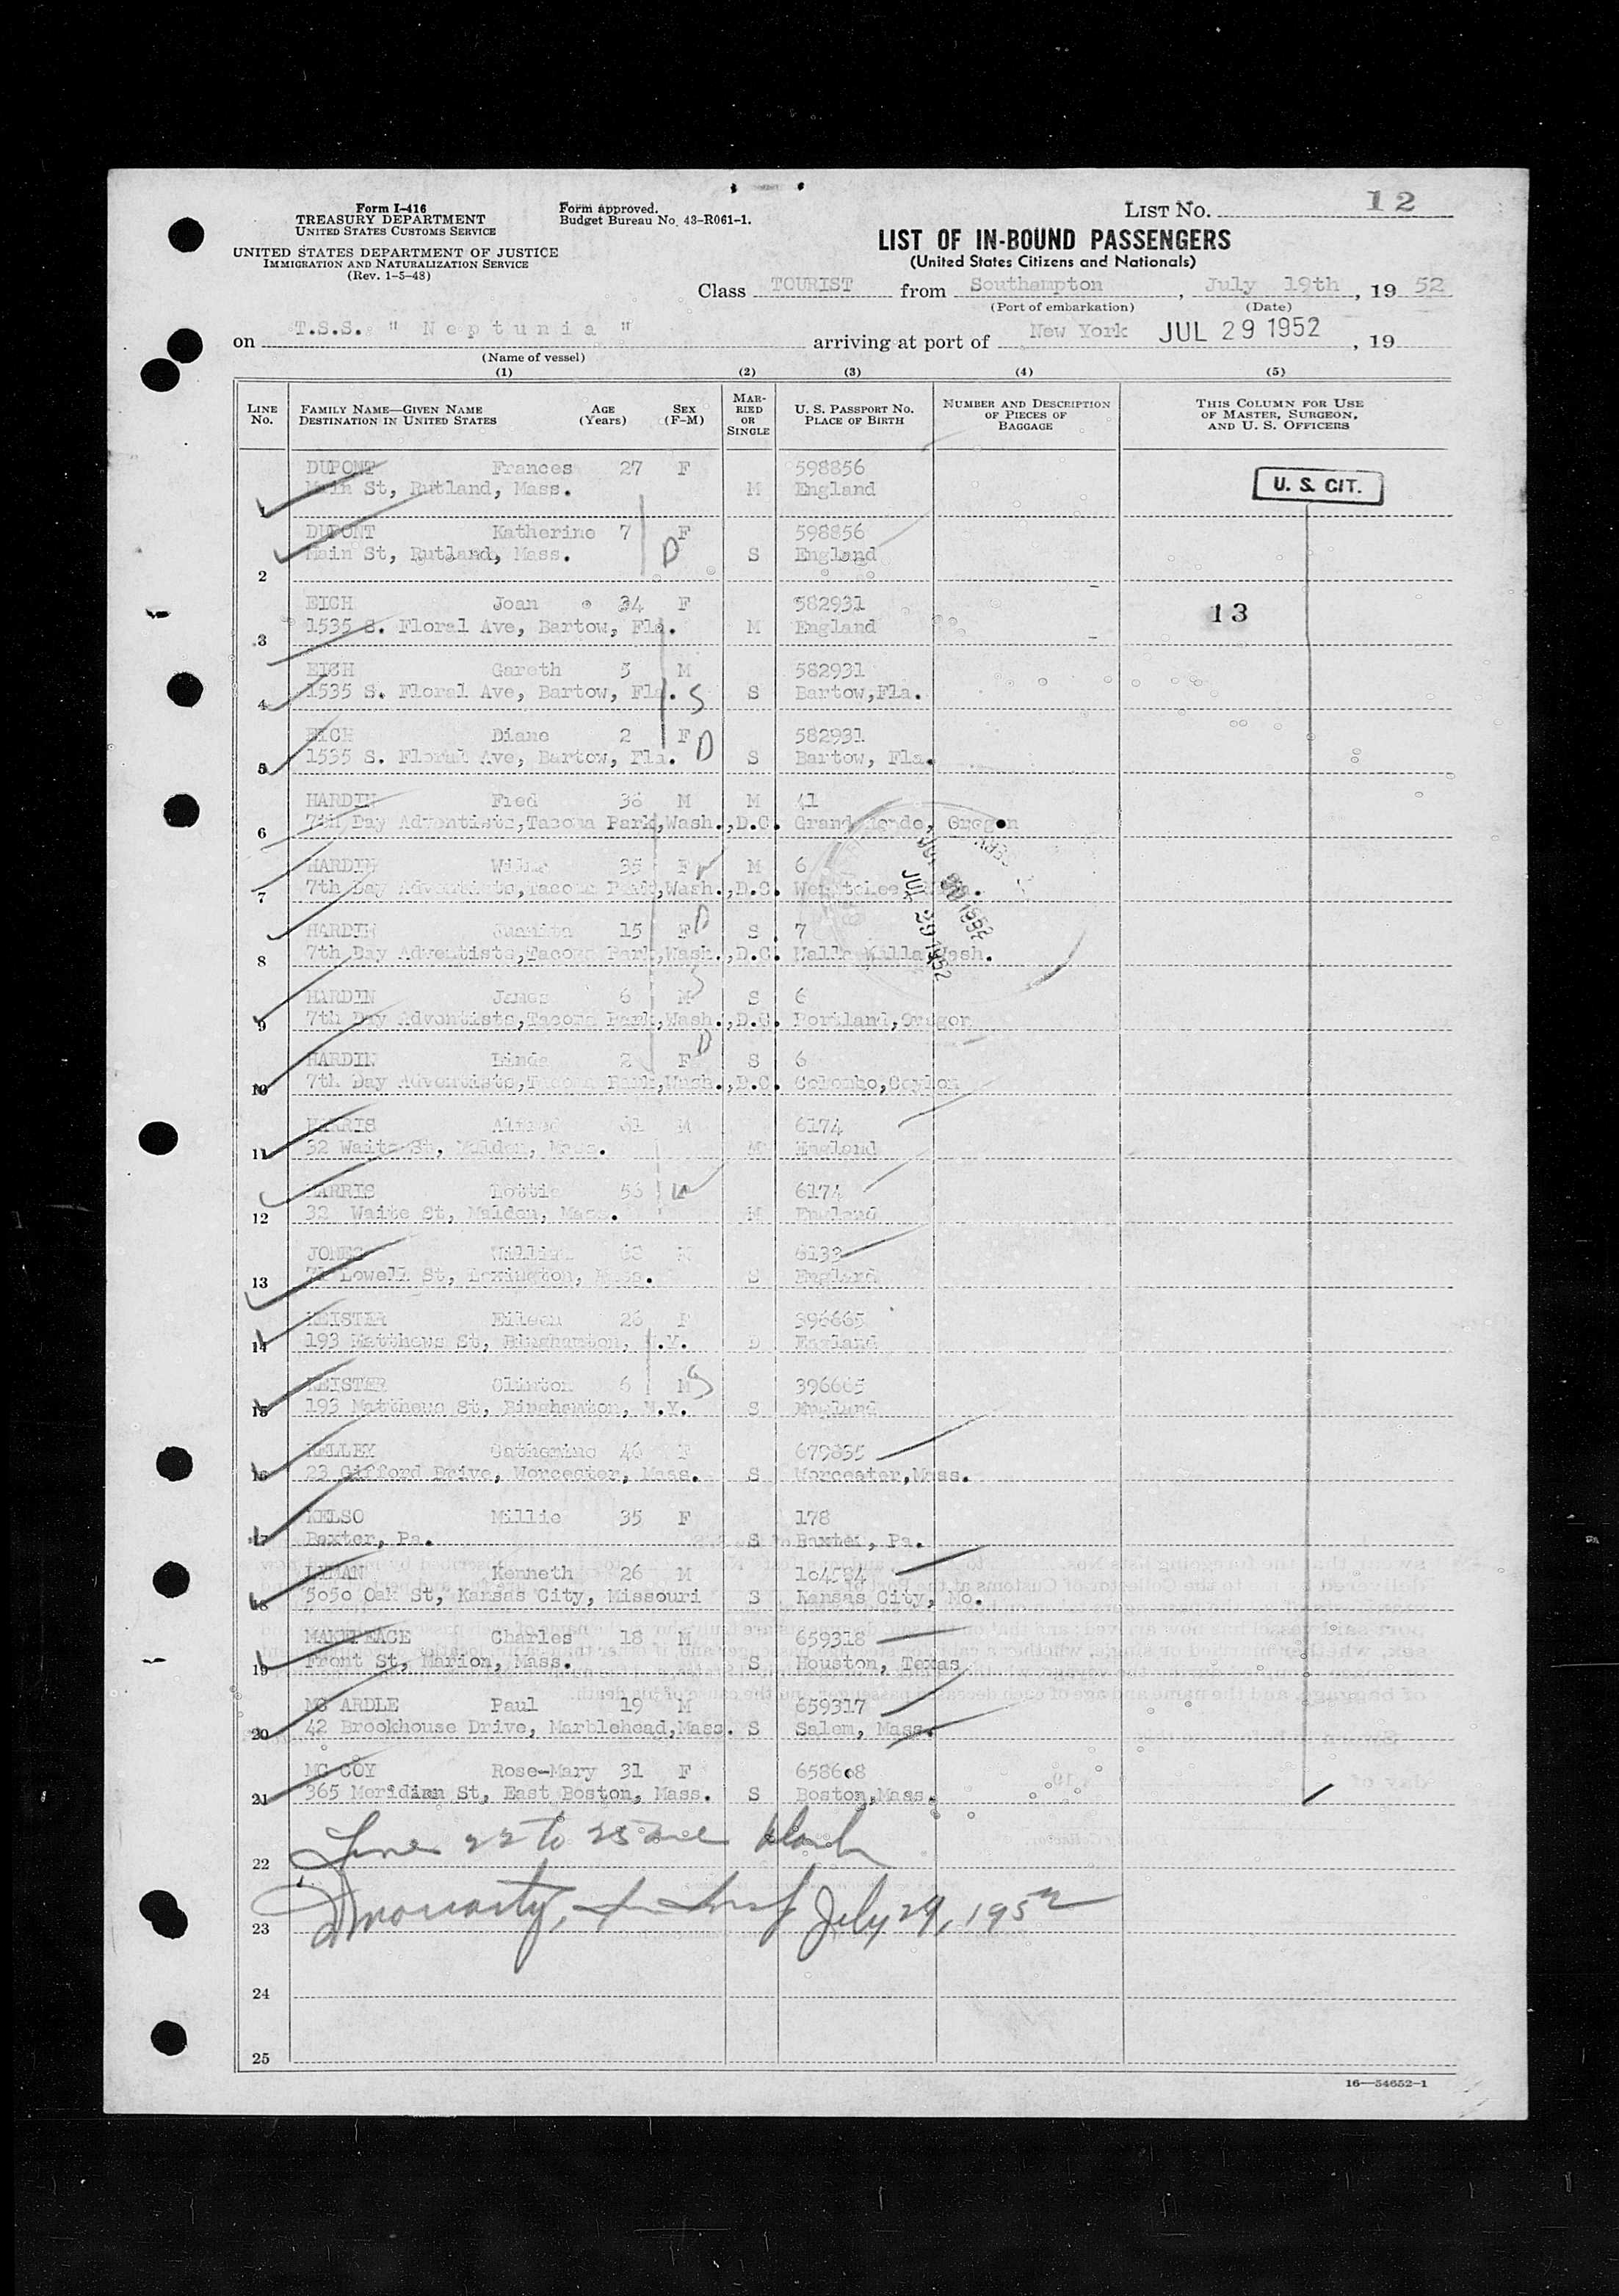 Form I-416
TREASURY DEPARTMENT
UNITED STATES CUSTOMS SERVICE
UNITED STATES DEPARTMENT OF JUSTICE
IMMIGRATION AND NATURALIZATION SERVICE
(Rev. 1-5-48)
Form approved.
Budget Bureau No. 43-R061-1.
LIST No. 12
LIST OF IN-BOUND PASSENGERS
(United States Citizens and Nationals)
Class TOURIST from Southampton, July 19th, 19 52
(Port of embarkation) (Date)
on T.S.S. " Neptunia " arriving at port of New York JUL 29 1952, 19
(Name of vessel)
(1) (2) (3) (4) (5)
LINE No. FAMILY NAME—GIVEN NAME DESTINATION IN UNITED STATES AGE (Years) SEX (F-M) MARRIED OR SINGLE U. S. PASSPORT No. PLACE OF BIRTH NUMBER AND DESCRIPTION OF PIECES OF BAGGAGE THIS COLUMN FOR USE OF MASTER, SURGEON, AND U. S. OFFICERS
DUPONT Frances 27 F 598856
1 Main St, Rutland, Mass. M England
U. S. CIT.
DUPONT Katherine 7 F 598856
Main St, Rutland, Mass. D S England
2
EICH Joan 34 F 582931
13
3 1535 S. Floral Ave, Bartow, Fla. M England
EICH Gareth 5 M 582931
4 1535 S. Floral Ave, Bartow, Fla. S S Bartow,Fla.
EICH Diane 2 F 582931
5 1535 S. Floral Ave, Bartow, Fla. D S Bartow, Fla.
HARDIN Fred 38 M M 41
6 7th Day Adventists,Tacoma Park,Wash.,D.C. Grand Ronde, Oregon
HARDIN Wilma 35 F M 6
7 7th Day Adventists,Tacoma Park,Wash.,D.C.
JUL 29 1952
HARDIN Juanita 15 F D S 7
8 7th Day Adventists,Tacoma Park,Wash.,D.C. Walla Walla Wash.
HARDIN James 6 M S S 6
9 7th Day Adventists,Tacoma Park,Wash.,D.C. Portland,Oregon
HARDIN Linda 2 F D S 6
10 7th Day Adventists,Tacoma Park,Wash.,D.C. Colombo,Ceylon
HARRIS Alfred 61 M 6174
11 32 Waite St, Malden, Mass. M England
HARRIS Lottie 56 6174
12 32 Waite St, Malden, Mass. M England
JONES William 63 M 6133
13 71 Lowell St, Lexington, Mass. S England
KEISTER Eileen 26 F 396665
14 193 Matthews St, Binghamton, N.Y. D England
KEISTER Clinton 6 M S 396665
15 193 Matthews St, Binghamton, N.Y. S England
KELLEY Catherine 46 F 679835
16 23 Gifford Drive, Worcester, Mass. S Worcester,Mass.
KELSO Millie 35 F 178
17 Baxter, Pa. S Baxter, Pa.
LYMAN Kenneth 26 M 1o4584
18 5o5o Oak St, Kansas City, Missouri S Kansas City, Mo.
MAKEPEACE Charles 18 M 659318
19 Front St, Marion, Mass. S Houston, Texas
MC ARDLE Paul 19 M 659317
20 42 Brookhouse Drive, Marblehead,Mass. S Salem, Mass.
MC COY Rose-Mary 31 F 6586o8
21 365 Meridian St, East Boston, Mass. S Boston,Mass.
Lines 22 to 25 are blank
22
Moriarty, July 29, 1952
23
24
25
16—54652-1